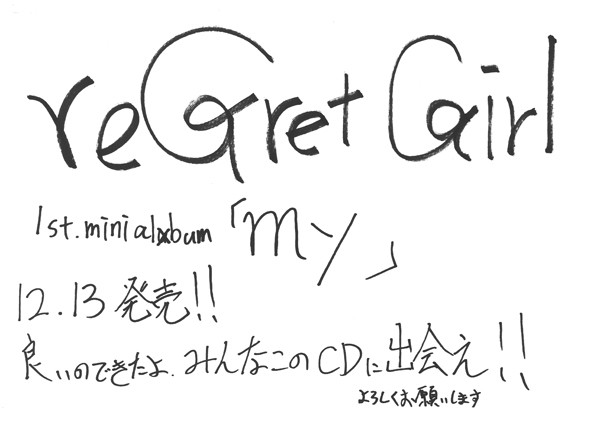 reGret Girl
1st.mini album「my」
12.13 発売!!
良いのできたよ.みんなこのCDに出会え!!
よろしくお願いします